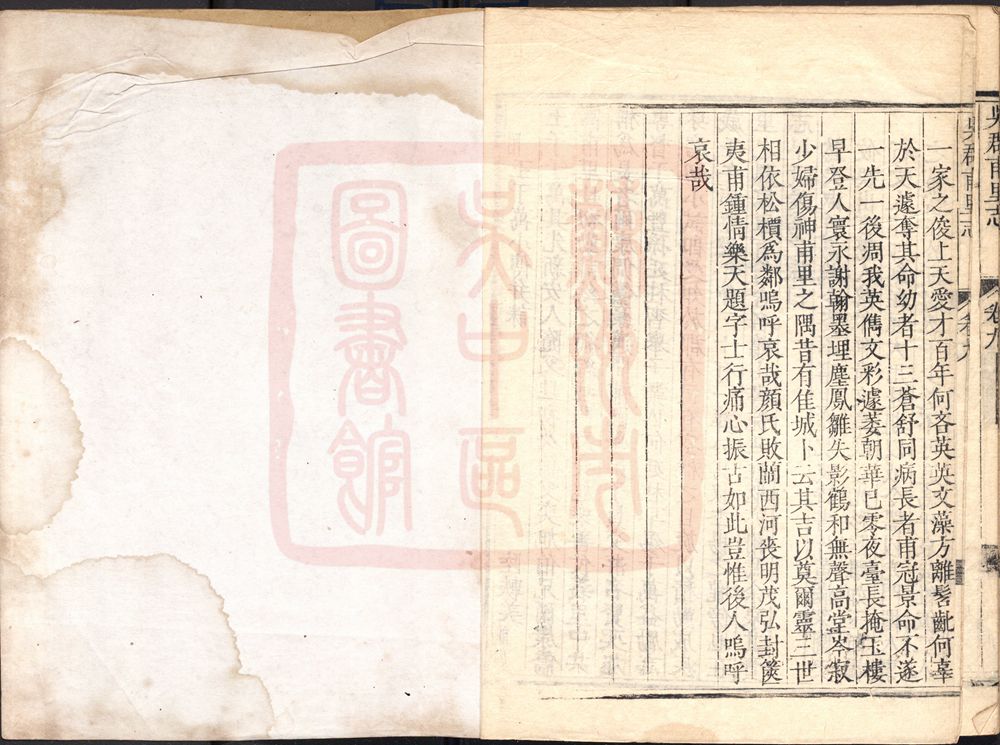 吳郡甫里志
卷九
吳郡甫里志
卷九
一家之俊上天愛才百年何吝英英文藻方離髫齔何辜
於天遽奪其命幼者十三蒼舒同病長者甫冠景命不遂
一先一後凋我英雋文彩遽萎朝華已零夜臺長掩玉樓
早登人寰永謝翰墨埋塵鳳雛失影鶴和無聲高堂岑寂
少婦傷神甫里之隅昔有佳城卜云其吉以奠爾靈三世
相依松檟為鄰嗚呼哀哉顏氏敗蘭西河喪明茂弘封篋
夷甫鍾情樂天題字士行痛心振古如此豈惟後人嗚呼
哀哉
蘇州市
吳中區
圖書館